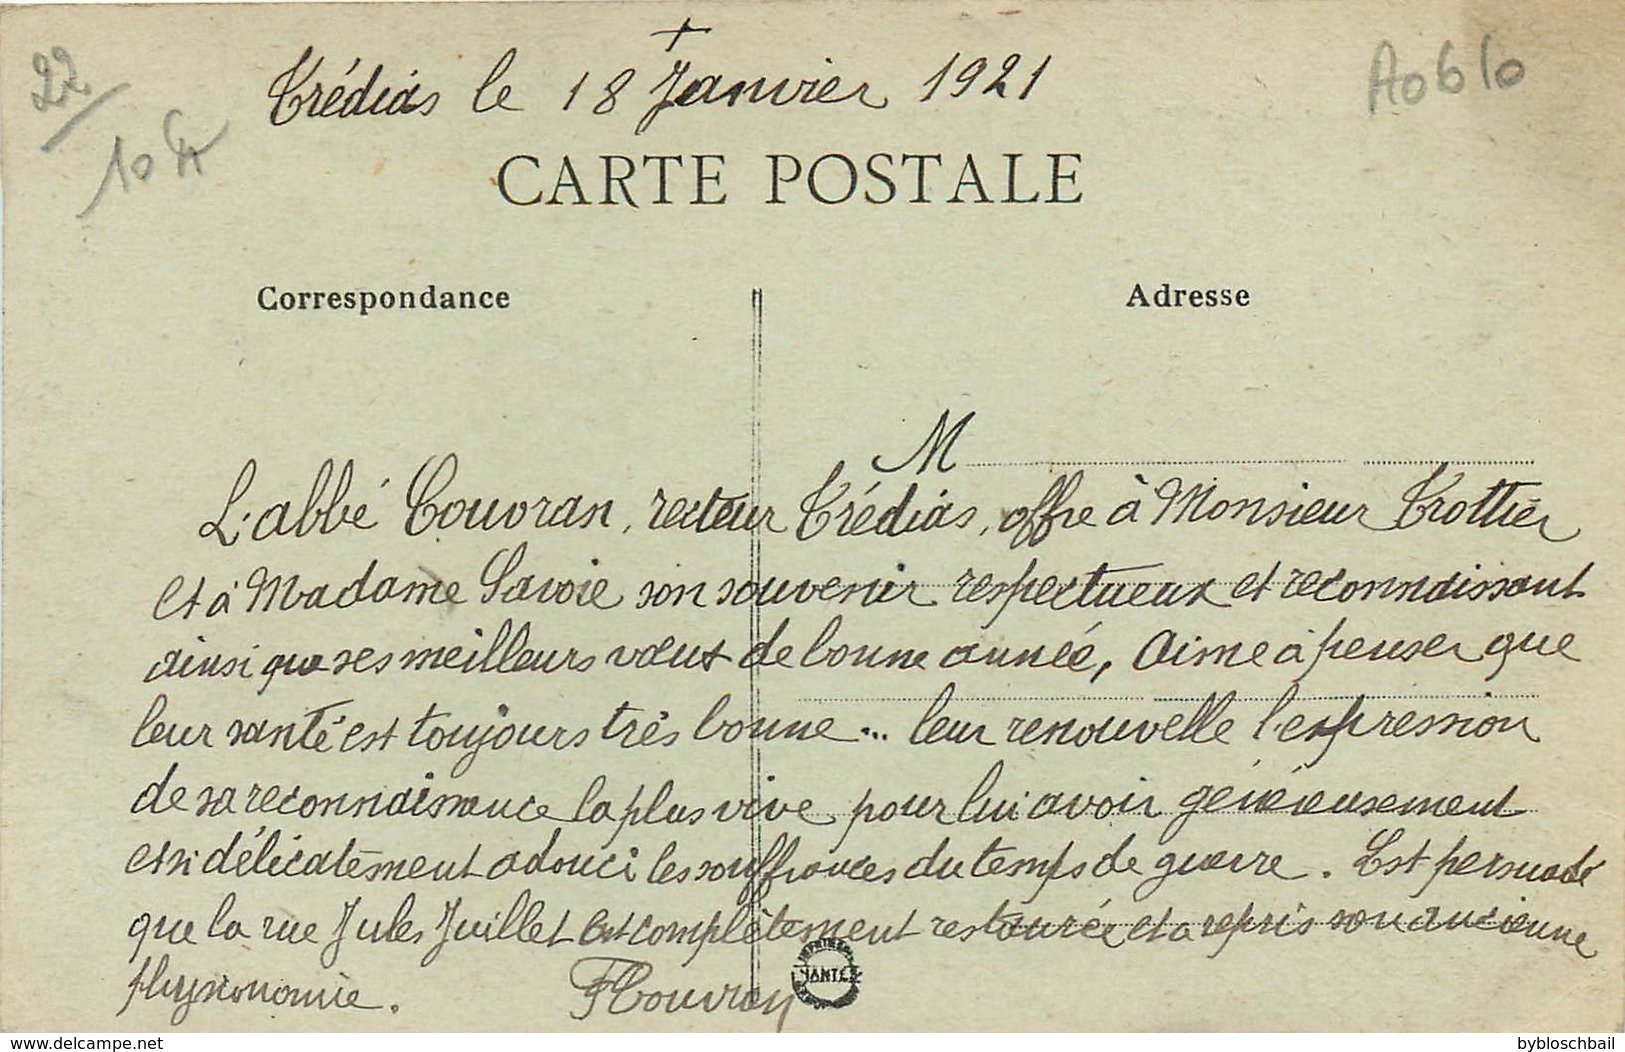 22/
10 Fr
+
Trédias le 18 Janvier 1921
A0610
CARTE POSTALE
Correspondance
Adresse
M
L'abbé Couvran, recteur Trédias, offre à Monsieur Trottier
et à Madame Savoie son souvenir respectueux et reconnaissant
ainsi que ses meilleurs vœux de bonne année, aime à penser que
leur santé est toujours très bonne... leur renouvelle l'expression
de sa reconnaissance la plus vive pour lui avoir généreusement
et si délicatement adouci les souffrances du temps de guerre. Est persuadé
que la rue Jules Juillet est complètement restaurée et a repris son ancienne
physionomie. FCouvran
NANTES
www.delcampe.net
bybloschbail